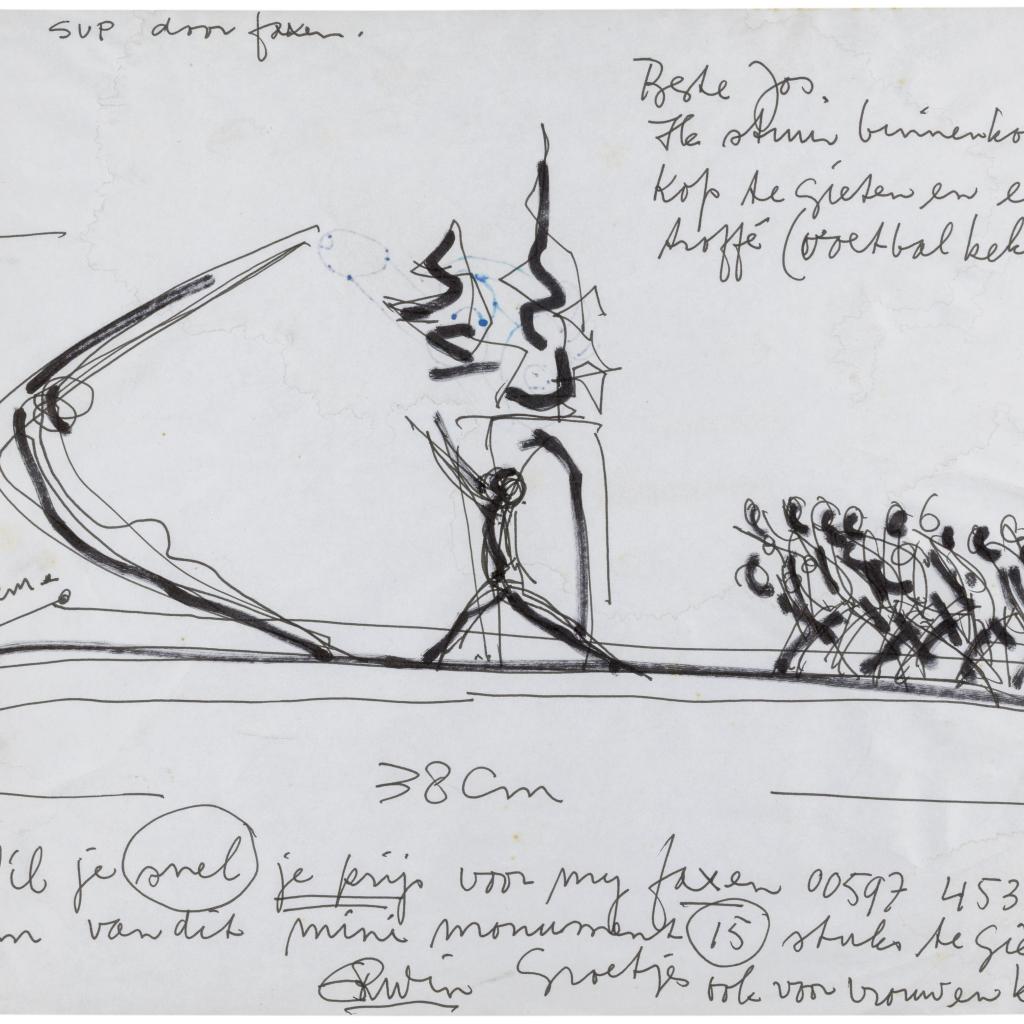 SVP door faxen.
Beste Jos
Ik stuur binnenko
kop te gieten en e
troffé (voetbal bek
eme
38 Cm
il je snel je prijs voor my faxen 00597 453
van dit mini monument 15 stuks te gie
ERWin Groetjes ook voor vrouw en k